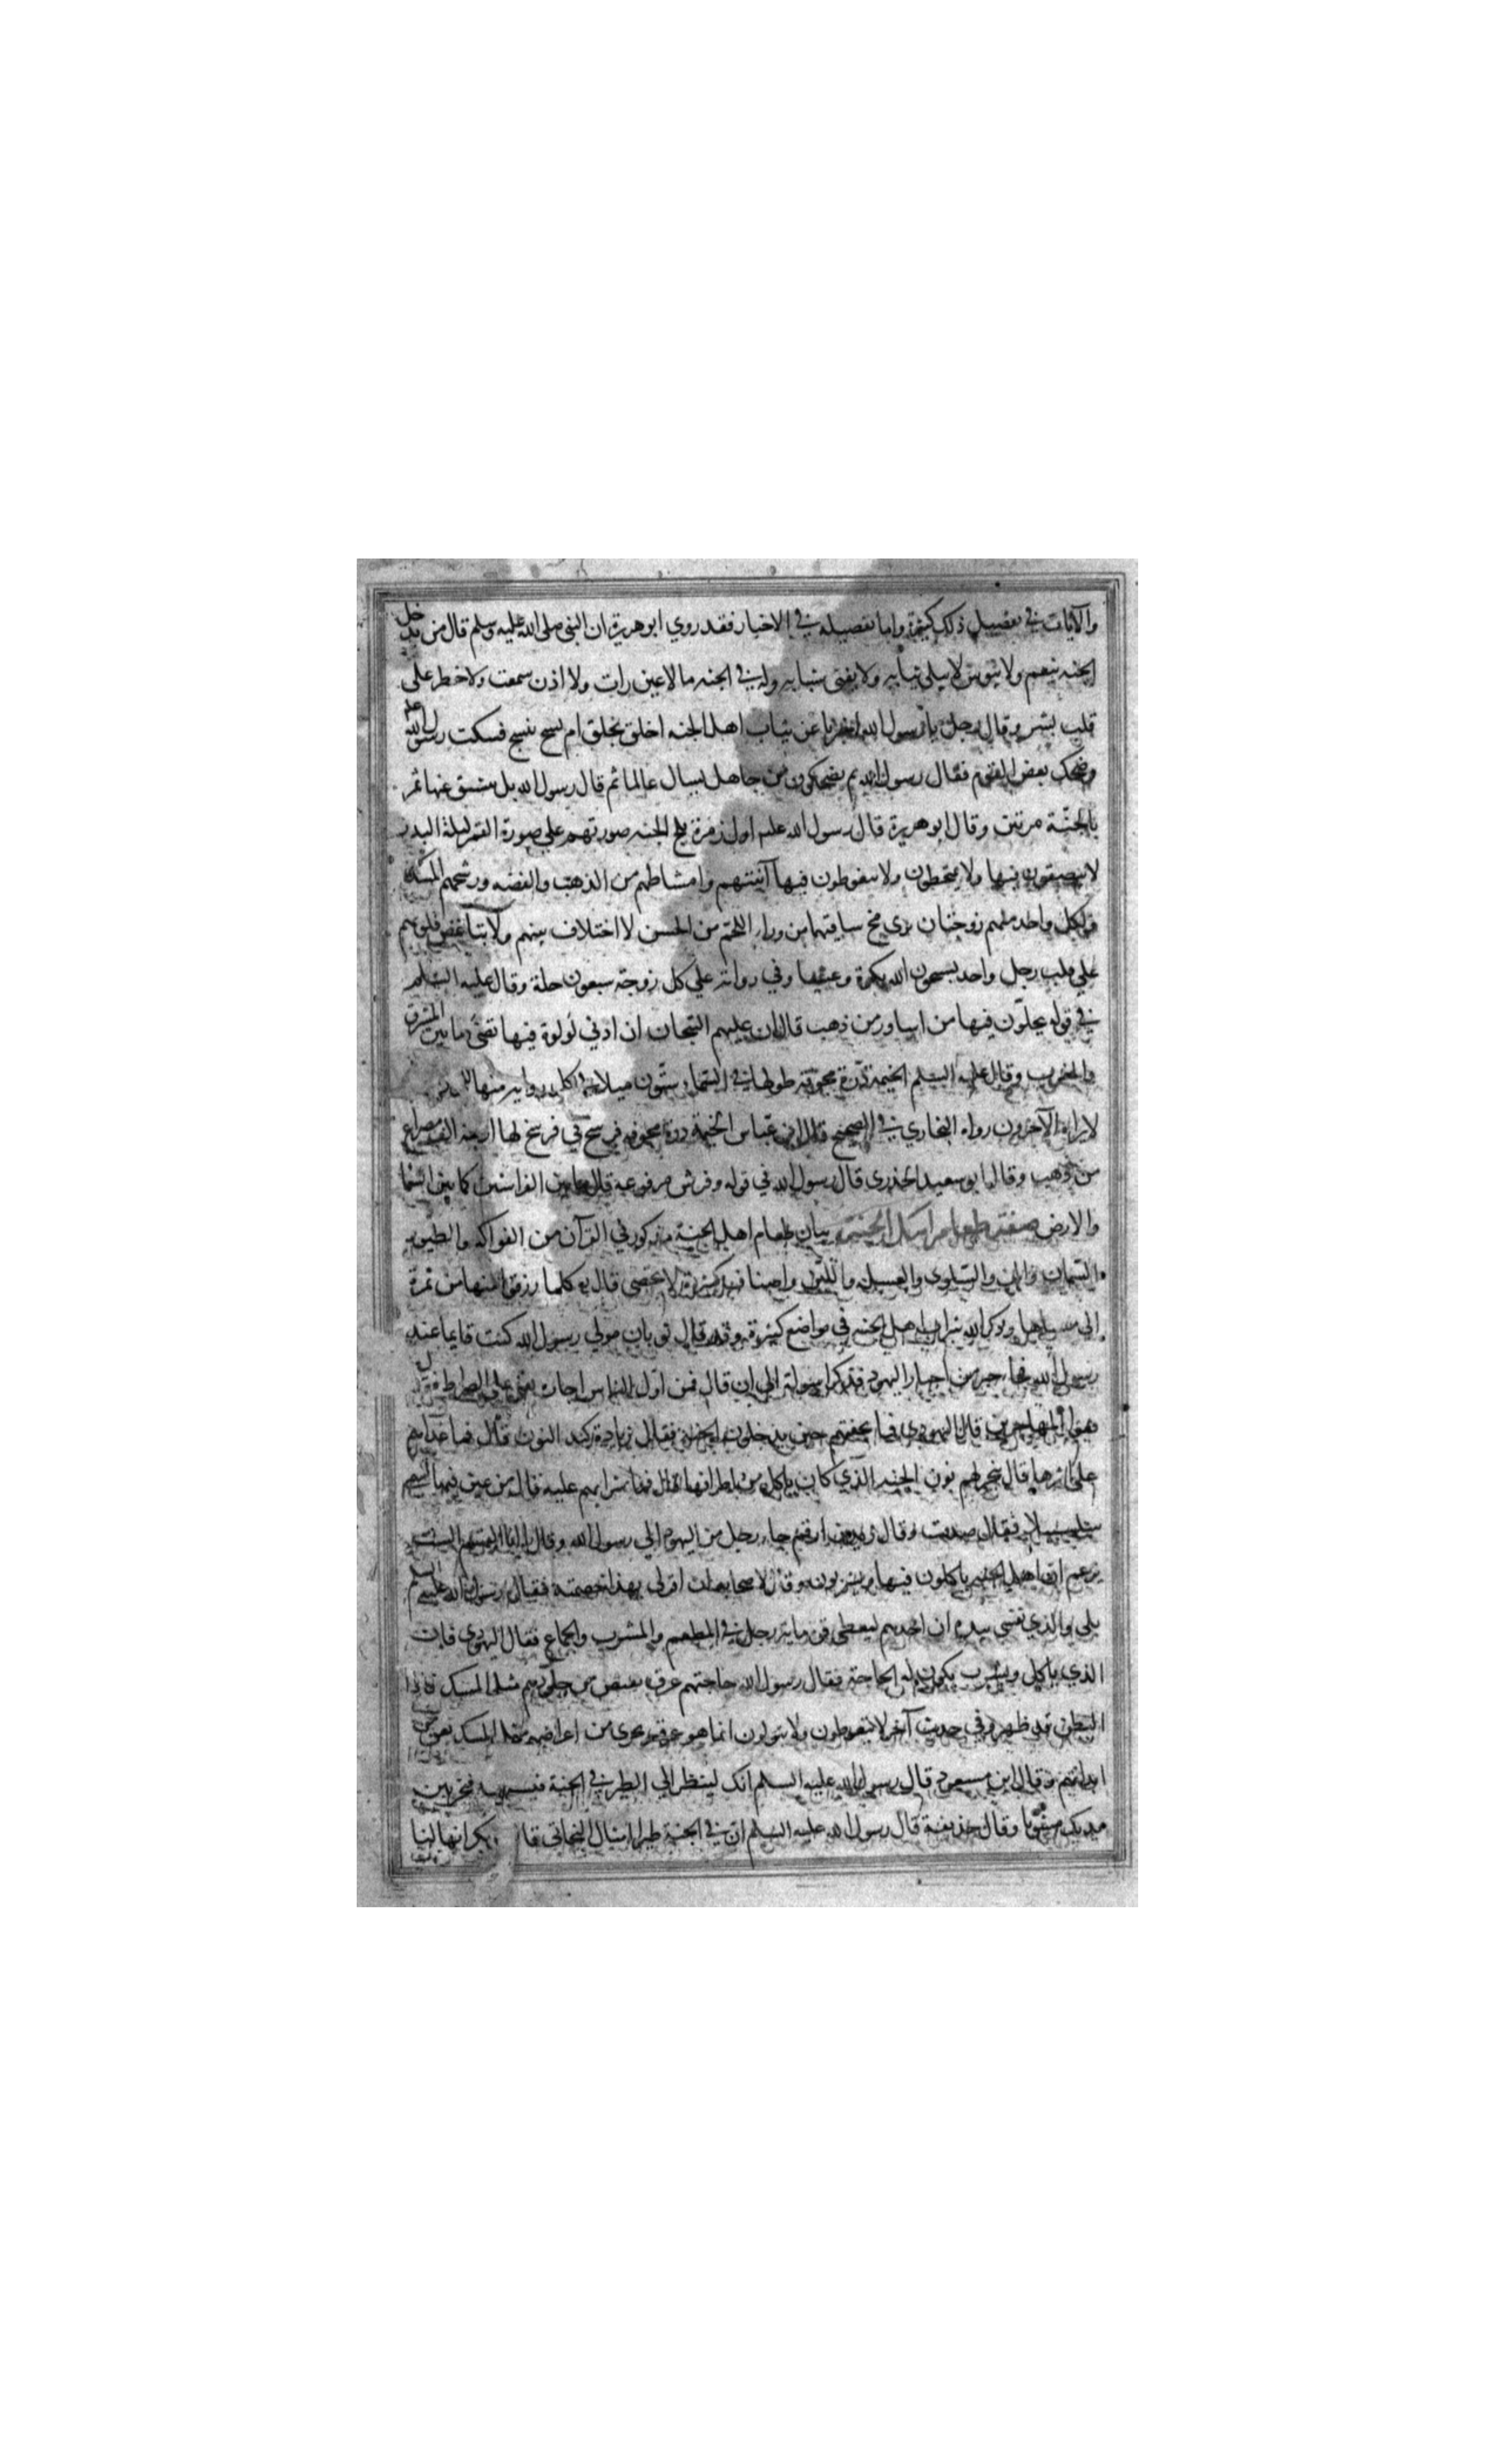 والآيات في تفصيل ذلك كثيرة واما تفصيله في الاخبار فقد روي ابو هريرة ان النبي صلى الله عليه وسلم قال من يدخل
الجنه ينعم ولا يبوس لا يبلى ثيابه ولا يفنى شبابه وله في الجنه ما لا عين رات ولا اذن سمعت ولا خطر على
قلب بشر وقال رجل يا رسول الله اخبرنا عن ثياب اهل الجنه اخلق يخلق ام نسج ينسج فسكت رسول الله عليه
وضحك بعض القوم فقال رسول الله مم يضحكون من جاهل يسال عالما ثم قال رسول الله بل ينشق عنها ثمر
بالجنة مرتين وقال ابو هريرة قال رسول الله عليه اول زمرة يلج الجنه صورتهم على صورة القمر ليلة البدر
لا يبصقون فيها ولا يتمخطون ولا يتغوطون فيها آنيتهم وامشاطهم من الذهب والفضه ورشحهم المسك
ولكل واحد منهم زوجتان يرى مخ ساقيهما من وراء اللحم من الحسن لا اختلاف بينهم ولا تباغض قلوبهم
على قلب رجل واحد يسبحون الله بكرة وعشيا وفي رواية على كل زوجة سبعون حلة وقال عليه السلم
في قوله يحلون فيها من اساور من ذهب قال ان عليهم التيجان ان ادنى لولوة فيها تضئ ما بين المشرق
والمغرب وقال عليه السلم الخيمة درة مجوفة طولها في السماء ستون ميلا في كل زاوية منها
لا يراه الآخرون رواه البخاري في الصحيح قال ابن عباس الخيمة درة مجوفه فرسخ في فرسخ لها اربعة الف مصراع
من ذهب وقال ابو سعيد الخدري قال رسول الله في قوله وفرش مرفوعه قال ما بين الفراشين كما بين السما
والارض صفة طعام اهل الجنة بيان طعام اهل الجنة مذكور في القرآن من الفواكه والطيور
السمان والمن والسلوى والعسل واللبن واصناف كثيرة لا تحصى قال كلما رزقوا منها من ثمرة
الى وذكر الله شراب اهل الجنه في مواضع كثيرة وقد قال ثوبان مولى رسول الله كنت قايما عند
رسول الله فجاء حبر من احبار اليهود فذكر اسولة الى ان قال فمن اول الناس اجازة يعني على الصراط فقال
فقرا المهاجرين قال اليهودي فما تحفتهم حين يدخلون الجنة فقال زيادة كبد النون قال فما غداوهم
على اثرها قال ينحر لهم نون الجنه الذي كان ياكل من اطرافها قال فما شرابهم عليه قال من عين فيها تسمى
سلسبيلا فقال صدقت وقال زيد بن ارقم جاء رجل من اليهود الى رسول الله وقال يا ابا القسم الست
تزعم ان اهل الجنه ياكلون فيها ويشربون وقال لاصحابه ان اقر لي بهذا خصمته فقال رسول الله عليه السلم
بلى والذي نفسي بيده ان احدهم ليعطى قوة ماية رجل في المطعم والمشرب والجماع فقال اليهودي فان
الذي ياكل ويشرب يكون له الحاجة فقال رسول الله حاجتهم عرق يفيض من جلودهم مثل المسك فاذا
البطن قد ظهر وفي حديث آخر لا يتغوطون ولا يبولون انما هو عرق يجري من اعراضهم مثل المسك
ابدانهم وقال ابن مسعود قال رسول الله عليه السلم انك لينظر الى الطير في الجنة فتشتهيه فيخر بين
يديك مشويا وقال حذيفة قال رسول الله عليه السلم ان في الجنة طيرا امثال البخاتي قال بكر انها